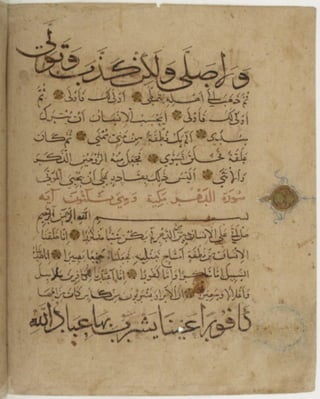 ولا صلى ولكن كذب وتولى
ثم ذهب الى اهله يتمطى اولى لك فاولى ثم
اولى لك فاولى ايحسب الانسان ان يترك
سدى الم يك نطفة من مني يمنى ثم كان
علقة فخلق فسوى فجعل منه الزوجين الذكر
والانثى اليس ذلك بقادر على ان يحيي الموتى
سورة الدهر مكية وهي ثلثون آية
بسم الله الرحمن الرحيم
هل اتى على الانسان حين من الدهر لم يكن شيئا مذكورا انا خلقنا
الانسان من نطفة امشاج نبتليه فجعلناه سميعا بصيرا انا هديناه
السبيل اما شاكرا واما كفورا انا اعتدنا للكافرين سلاسل
واغلالا وسعيرا ان الابرار يشربون من كاس كان مزاجها
كافورا عينا يشرب بها عباد الله